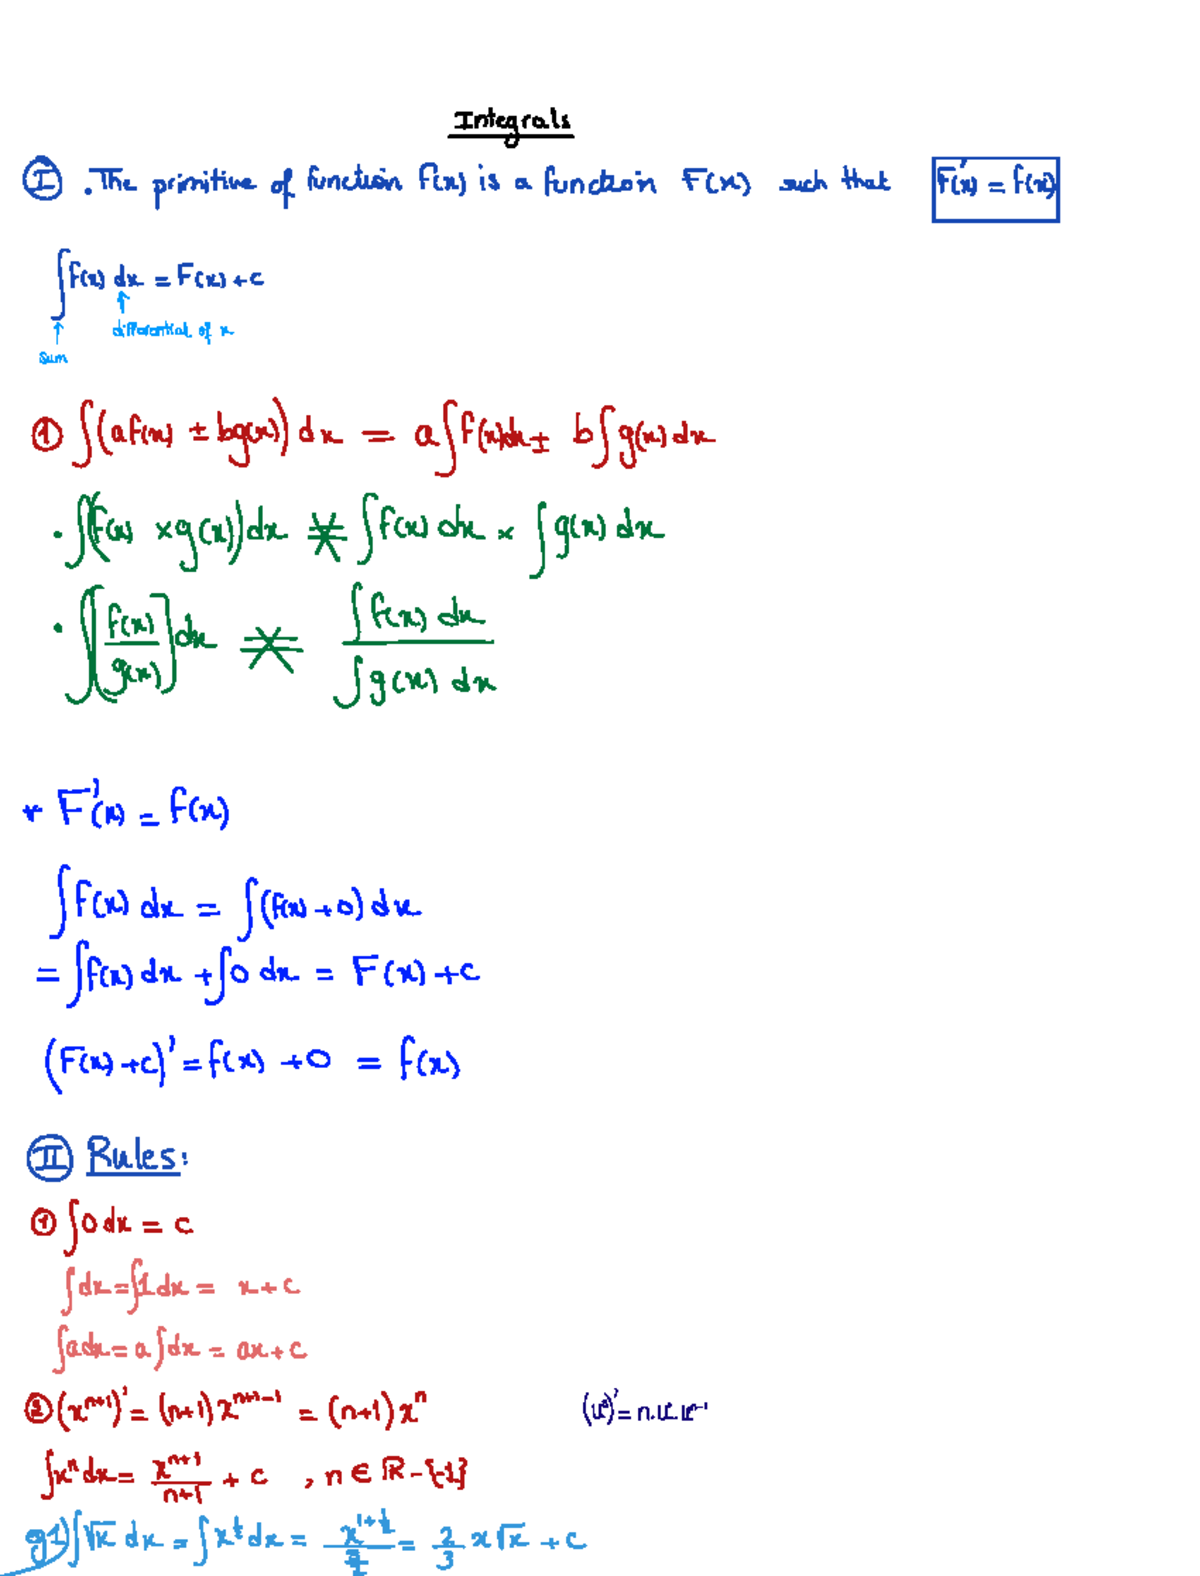 Integrals
Ⓘ . The primitive of function f(x) is a function F(x) such that F'(x) = f(x)
∫f(x) dx = F(x) + c
↑ differential of x
↑ sum
① ∫(af(x) ± bg(x)) dx = a∫f(x)dx ± b∫g(x) dx
• ∫(f(x) × g(x)) dx ≠ ∫f(x) dx × ∫g(x) dx
• ∫[f(x)/g(x)] dx ≠ ∫f(x) dx / ∫g(x) dx
* F'(x) = f(x)
∫f(x) dx = ∫(f(x) + 0) dx
= ∫f(x) dx + ∫0 dx = F(x) + c
(F(x) + c)' = f(x) + 0 = f(x)
Ⓘ Ⓘ Rules:
① ∫0 dx = c
∫dx = ∫1 dx = x + c
∫adx = a∫dx = ax + c
② (xⁿ⁺¹)' = (n+1) xⁿ⁺¹⁻¹ = (n+1) xⁿ (uⁿ)' = n.u'.uⁿ⁻¹
∫xⁿ dx = xⁿ⁺¹/(n+1) + c , n ∈ ℝ - {-1}
g1) ∫√x dx = ∫x^(1/2) dx = x^(1+1/2)/(3/2) = 2/3 x√x + c